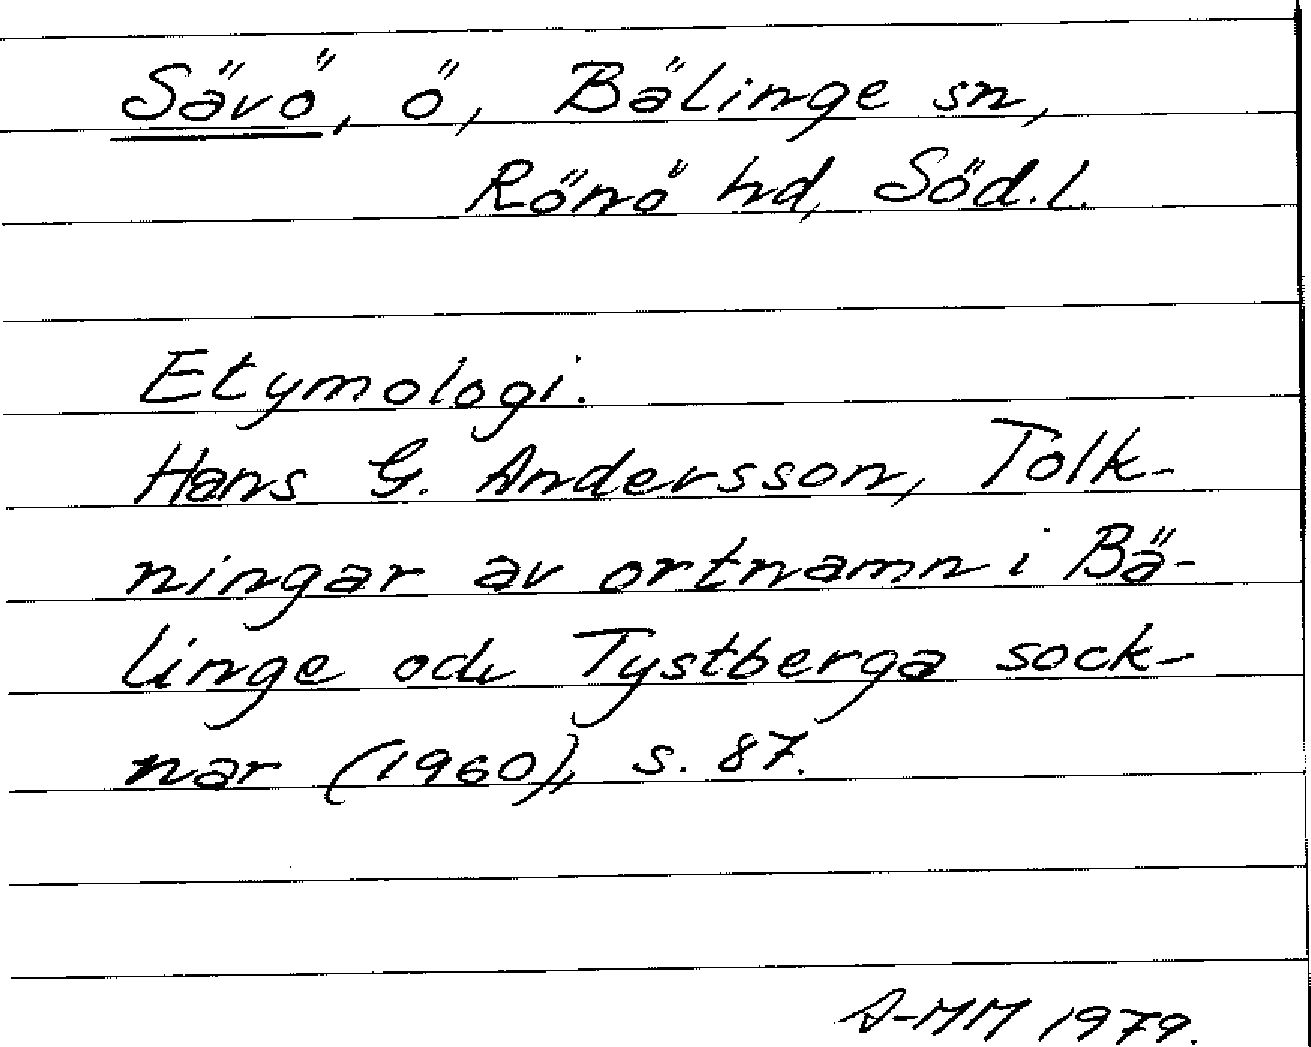 Sävö, ö, Bälinge sn,
Rönö hd, Söd.l.
Etymologi.
Hans G. Andersson, Tolk-
ningar av ortnamn i Bä-
linge och Tystberga sock-
nar (1960), s. 87.
A-MM 1979.